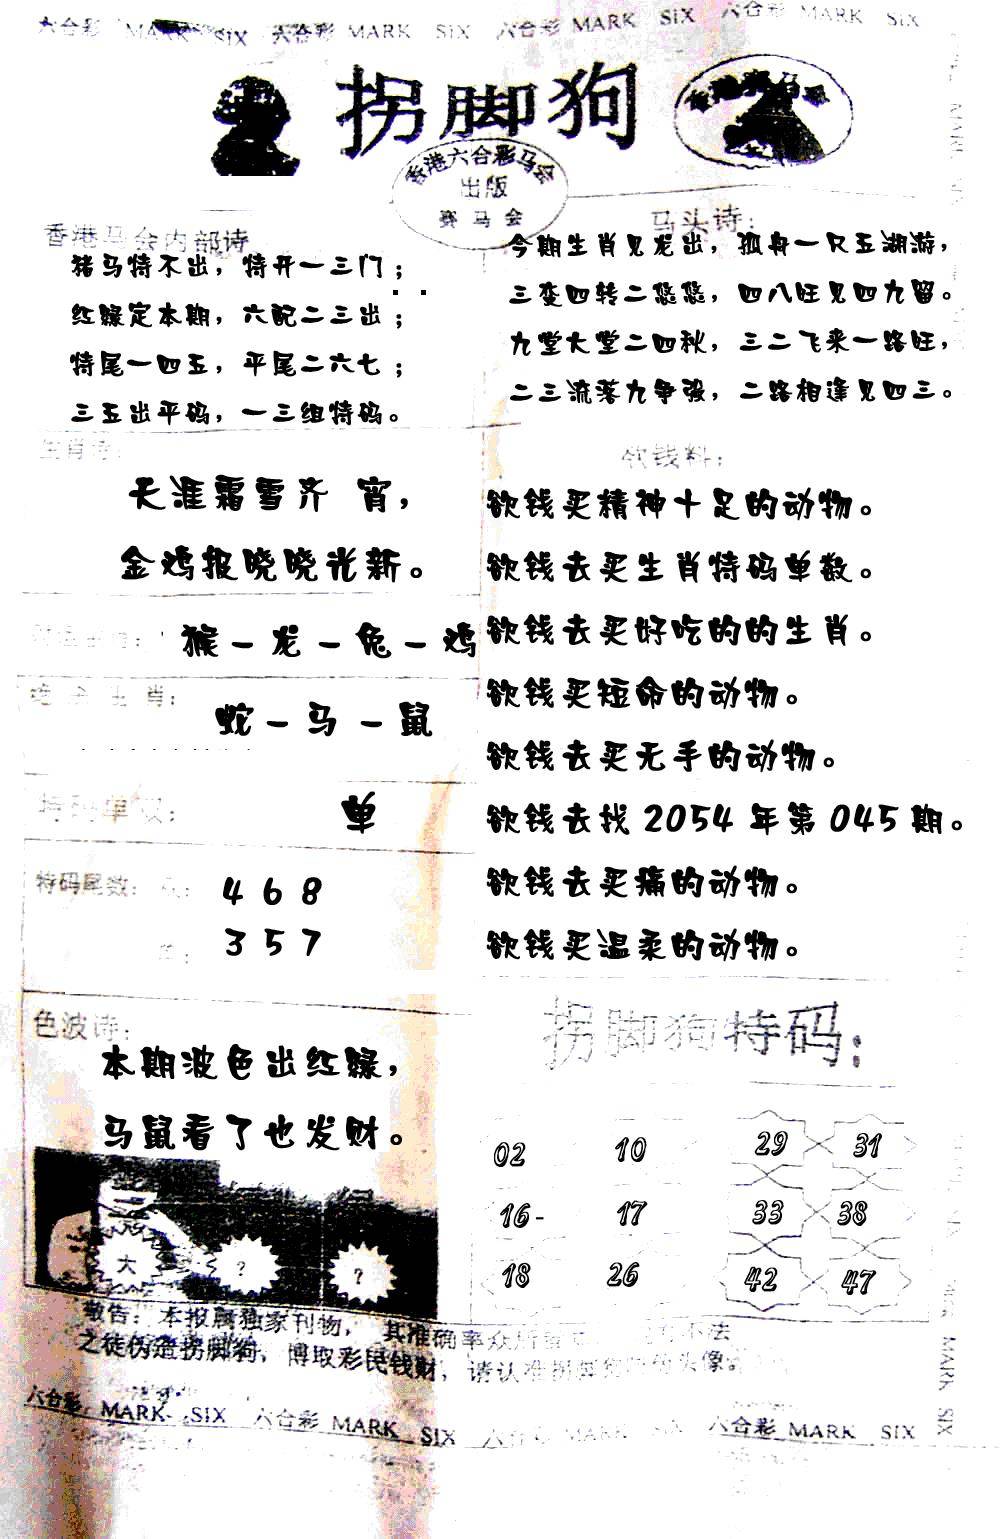 六合彩 MARK SIX 六合彩 MARK SIX 六合彩 MARK SIX 六合彩 MARK SIX
拐脚狗
香港六合彩马会
出版
赛马会
香港马会内部诗
猪马特不出，特开一三门；
红绿定本期，六配二三出；
特尾一四五，平尾二六七；
三五出平码，一三组特码。
马头诗：
今期生肖见龙出，孤舟一只五湖游，
三变四转二悠悠，四八旺见四九留。
九堂大堂二四秋，三二飞来一路旺，
二三流落九争强，二路相逢见四三。
生肖诗：
天涯霜雪齐 宵，
金鸡报晓晓光新。
猴－龙－兔－鸡
绝杀生肖：
蛇－马－鼠
特码单双：
单
特码尾数：
4 6 8
3 5 7
欲钱料：
欲钱买精神十足的动物。
欲钱去买生肖特码单数。
欲钱去买好吃的的生肖。
欲钱买短命的动物。
欲钱去买无手的动物。
欲钱去找 2054 年第 045 期。
欲钱去买痛的动物。
欲钱买温柔的动物。
色波诗：
本期波色出红绿，
马鼠看了也发财。
大 ？ ？
拐脚狗特码：
02 10 29 31
16- 17 33 38
18 26 42 47
敬告：本报属独家刊物，其准确率众所 不法
之徒伪造拐脚狗，博取彩民钱财，请认准拐脚 头像。
六合彩 MARK SIX 六合彩 MARK SIX 六合彩 MARK 六合彩 MARK SIX
MARK SIX